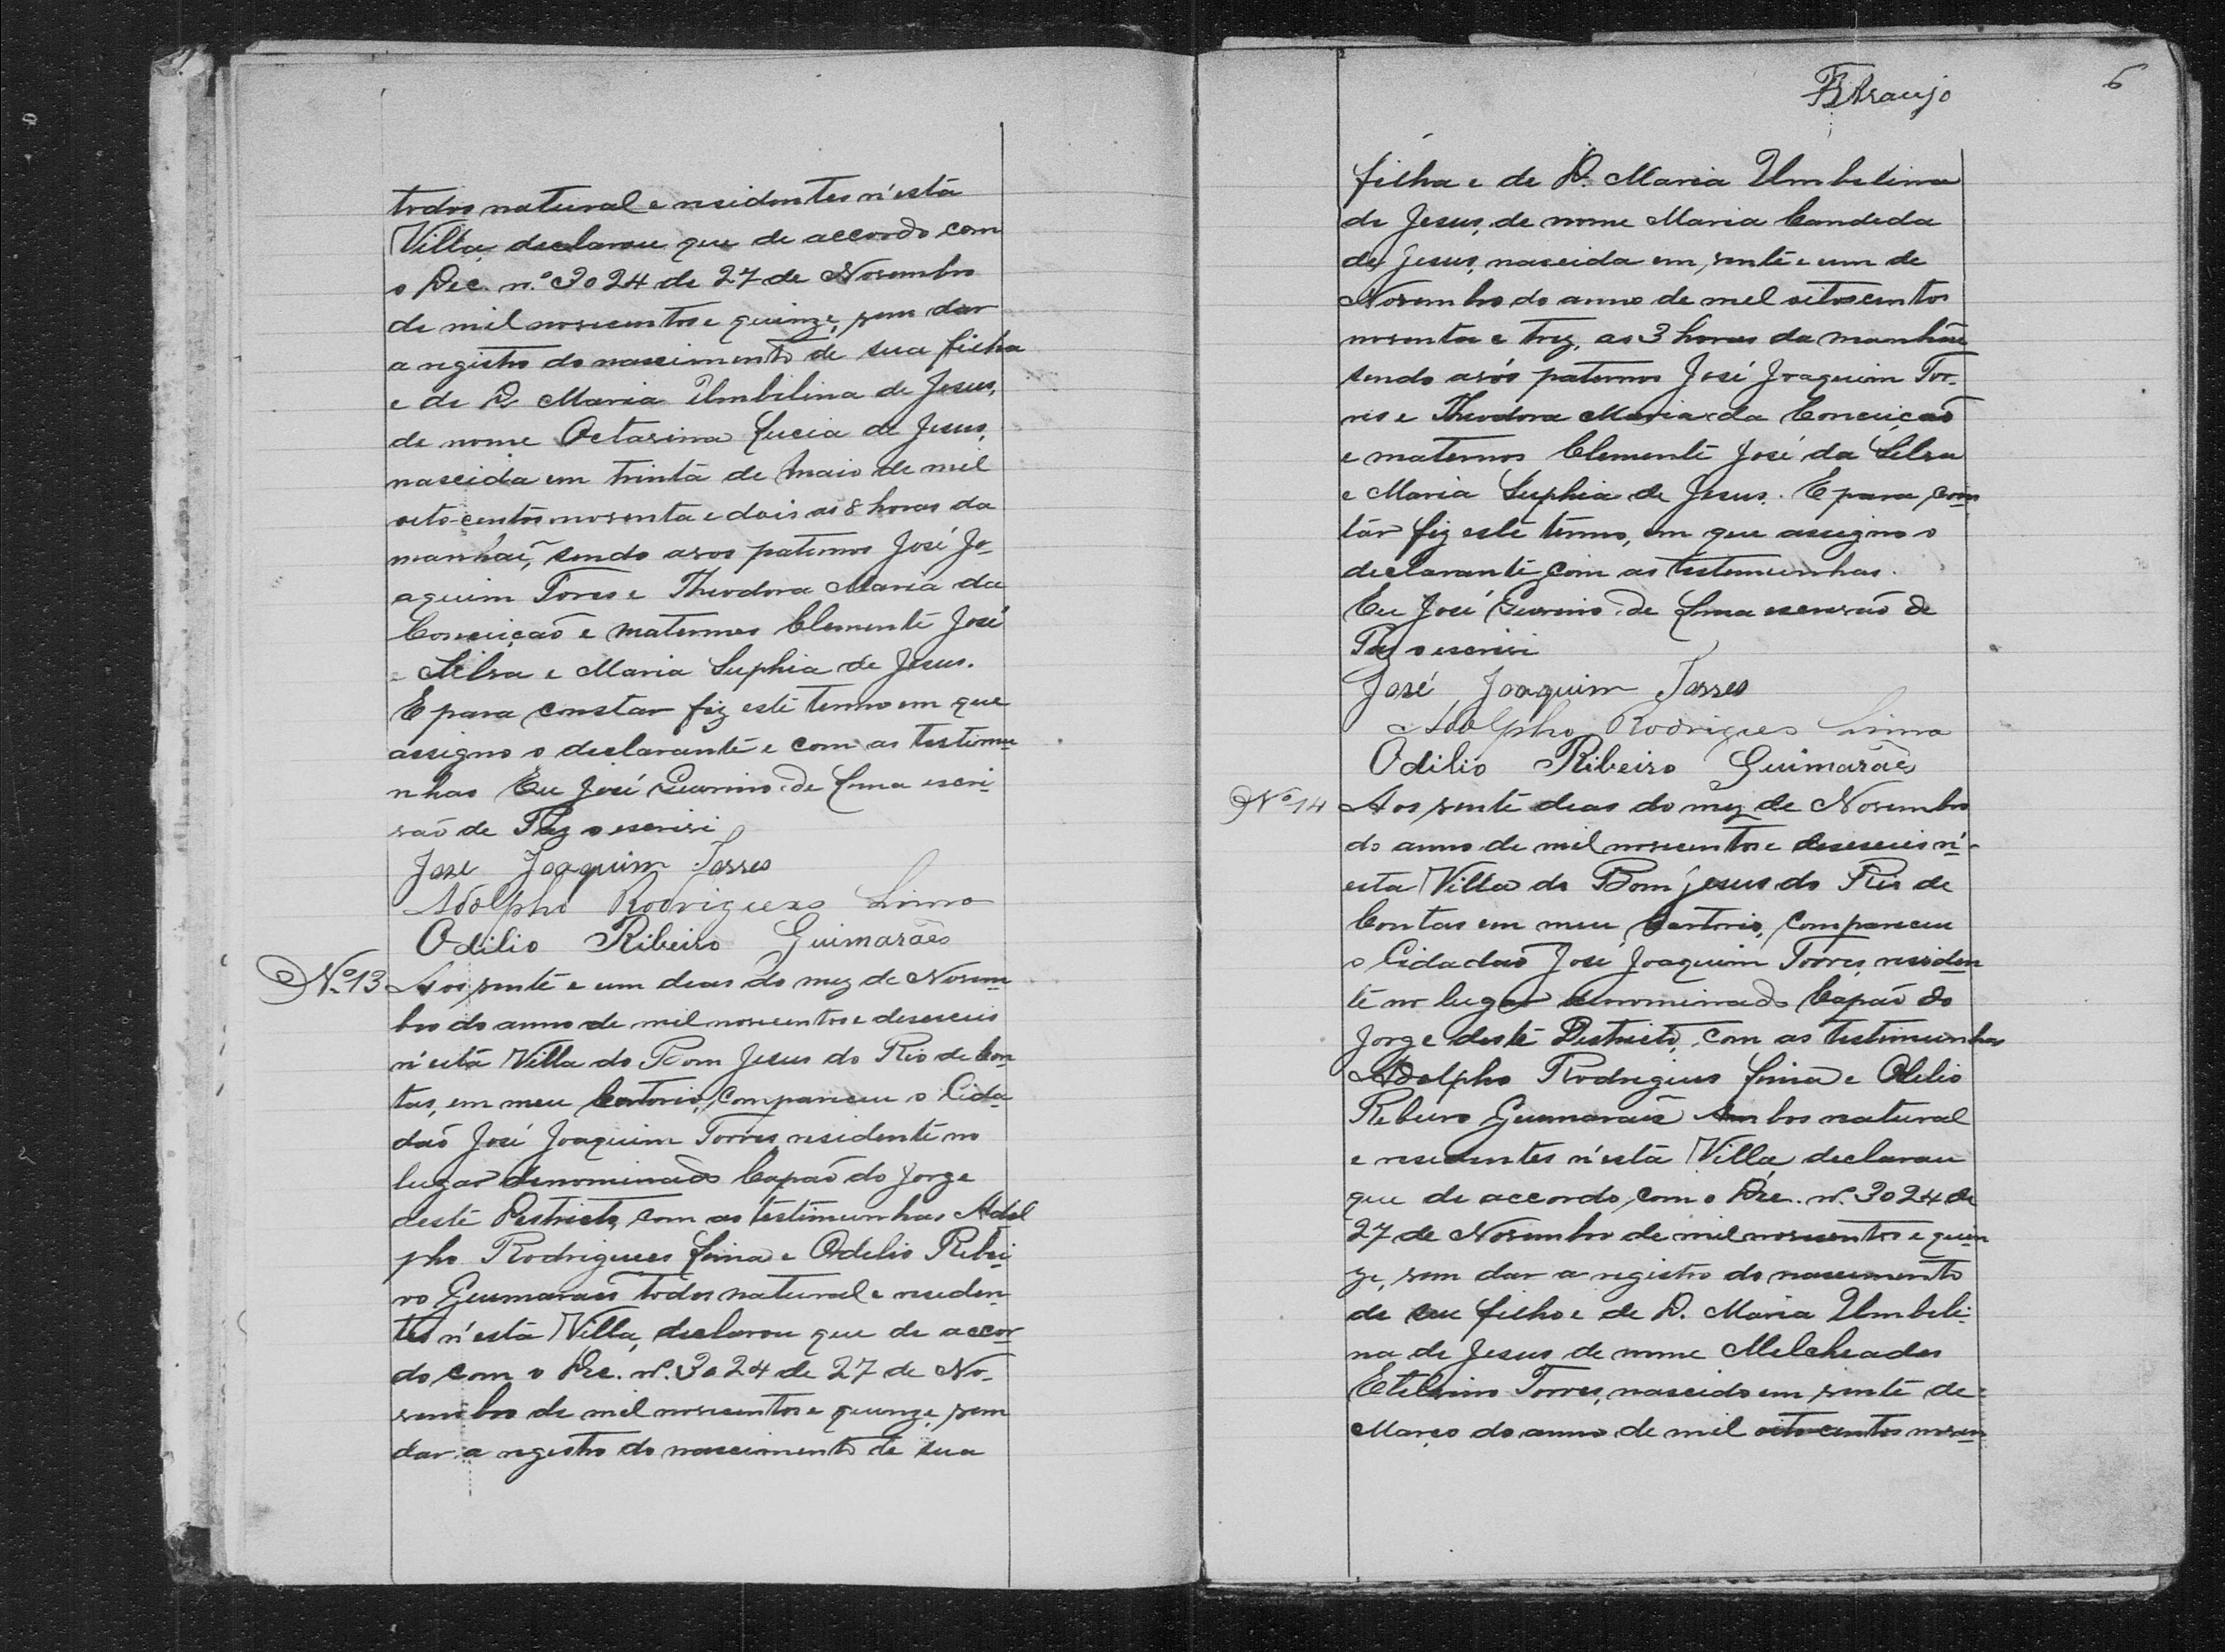 todos natural e residentes n'esta
Villa, declarou que de accordo com
o Dec. n.º 3024 de 27 de Novembro
de mil novecentos e quinze, vem dar
a registro do nascimento de sua filha
e de D. Maria Umbilina de Jesus,
de nome Octavina Lucia de Jesus,
nascida em trinta de Maio de mil
oito centos noventa e dois as 8 horas da
manhaẽ, sendo avos paternos José Jo-
aquim Torres e Theodora Maria da
Conceiçaõ e maternos Clemente José
e Silva e Maria Suphia de Jesus.
E para constar fiz este termo em que
assigno o declarante e com as testimu-
nhas Eu José Guerino de Lima escri-
vaõ de Paz o escrivi
Jose Joaquim Torres
Adolpho Rodrigues Lima
Odilio Ribeiro Guimarães
Nº 13 Aos vente e um deas do mez de Novem-
bro do anno de mil novecentos e deseceis
n'esta Villa do Bom Jesus do Rio de Con-
tas, em meu Cartorio, compareceu o Cida-
daõ José Joaquim Torres residente no
lugar denominado Capaõ do Jorge
deste Destricto, com as testimunhas Adol
pho Rodrigues Lima e Odelio Ribei-
ro Guimaraes todos natural e residen-
tes n'esta Villa, declarou que de accor-
do com o Dec. nº. 3024 de 27 de No-
vembro de mil novecentos e quinze, vem
dar a registro do nascimento de sua
FBAraujo
6
filha e de D. Maria Umbelina
de Jesus, de nome Maria Candeda
de Jesus, nascida em vente e um de
Novembro do anno de mel oitocentos
noventa e trez, as 3 horas da manhãe
sendo avós paternos José Joaquim Tor-
res e Theodora Maria da Conceiçaõ
e maternos Clemente José da Silva
e Maria Suphia de Jesus. E para cons-
tar fiz este termo, em que assigno o
declarante com as testemunhas.
Eu José Guerino de Lima escrivaõ de
Paz o escrivi
José Joaquim Torres
Adolpho Rodrigues Lima
Odilio Ribeiro Guimarães
Nº 14 Aos vente deas do mez de Novembro
do anno de mil novecentos e deseseis n'-
esta Villa do Bom Jesus do Rio de
Contas em meu Cartorio, compareceu
o Cidadaõ José Joaquim Torres, residen-
te no lugar denominado Capaõ do
Jorge deste Destricto, com as testimunhas
Adolpho Rodrigues Lima e Odelio
Rebeiro Guimaraes Ambos natural
e resedentes n'esta Villa, declarou
que de accordo, com o Dec. nº. 3024 de
27 de Novembro de mil novecentos e quin-
ze, vem dar a registro do nascimento
de seu filho e de D. Maria Umbeli-
na de Jesus de nome Melcheades
Etelvino Torres, nascido em vente de
Março do anno de mil oitocentos noven-